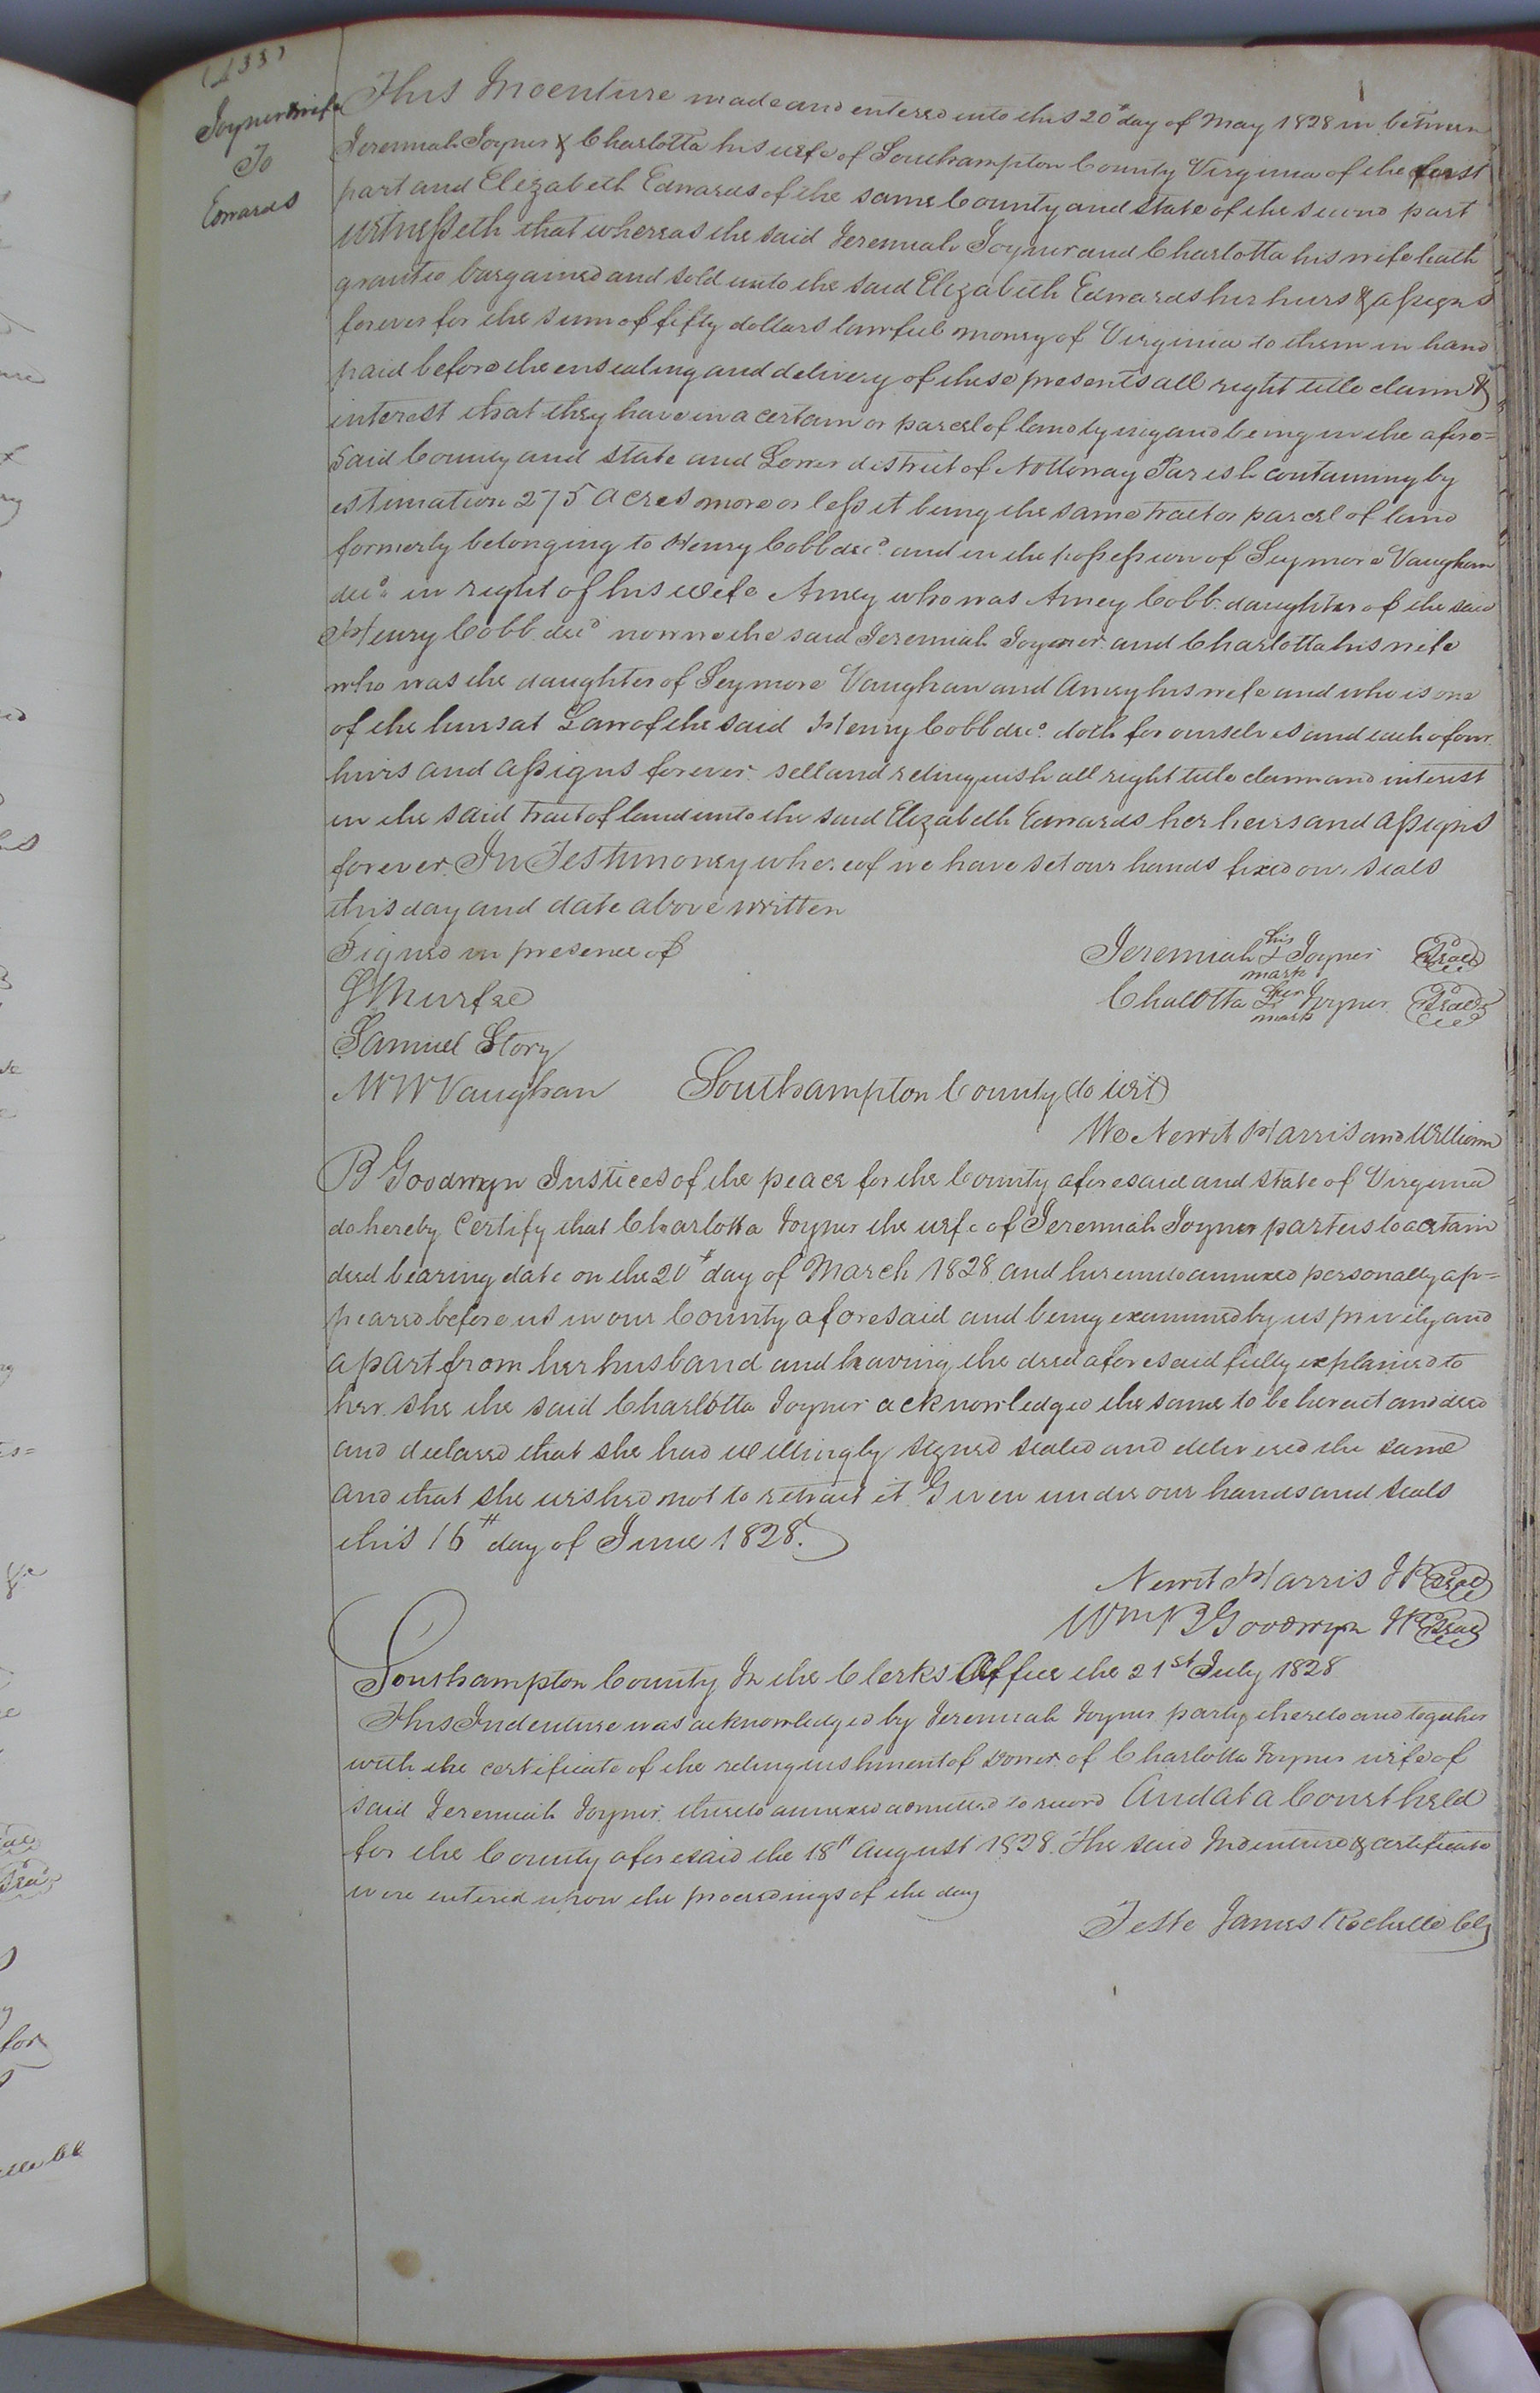 Joyner & wife
To
Edwards
This Indenture made and entered into this 20th day of May 1828 in between
Jeremiah Joyner & Charlotta his wife of Southampton County Virginia of the first
part and Elizabeth Edwards of the same County and state of the second part
witnesseth that whereas the said Jeremiah Joyner and Charlotta his wife hath
granted bargained and sold unto the said Elizabeth Edwards her heirs & assigns
forever for the sum of fifty dollars lawful money of Virginia to them in hand
paid before the ensealing and delivery of these presents all right title claim &
interest that they have in a certain or parcel of land lying and being in the afore=
said County and state and Lower district of Nottoway Parish containing by
estimation 275 acres more or less it being the same tract or parcel of land
formerly belonging to Henry Cobb decd. and in the possession of Seymore Vaughan
decd. in right of his wife Amey who was Amey Cobb daughter of the said
Henry Cobb decd. now we the said Jeremiah Joyner and Charlotta his wife
who was the daughter of Seymore Vaughan and Amey his wife and who is one
of the heirs at Law of the said Henry Cobb decd. doth for ourselves and each of our
heirs and assigns forever sell and relinquish all right title claim and interest
in the said tract of land unto the said Elizabeth Edwards her heirs and assigns
forever. In Testimoney whereof we have set our hands fixed our seals
this day and date above written
Signed in presence of
Jeremiah his + mark Joyner Seal
J Murfee
Charlotta her + mark Joyner Seal
Samuel Story
M W Vaughan Southampton County (to wit)
We Newit Harris and William
B Goodwyn Justices of the peace for the County aforesaid and state of Virginia
do hereby Certify that Charlotta Joyner the wife of Jeremiah Joyner parteis to a certain
deed bearing date on the 20th day of March 1828 and hereunto annexed personally ap=
peared before us in our County aforesaid and being examined by us privily and
apart from her husband and having the deed aforesaid fully explained to
her. she the said Charlotta Joyner acknowledged the same to be her act and deed
and declared that she had willingly signed sealed and delivered the same
and that she wished not to retract it. Given under our hands and seals
this 16th day of June 1828.
Newit Harris JP Seal
Wm B Goodwyn JP Seal
Southampton County In the Clerks Office the 21st July 1828
This Indenture was acknowledged by Jeremiah Joyner party thereto and together
with the certificate of the relinquishment of Dower of Charlotta Joyner wife of
said Jeremiah Joyner thereto annexed admitted to record And at a Court held
for the County aforesaid the 18th August 1828. The said Indenture & certificate
were entered upon the proceedings of the day
Teste James Rochelle Clk